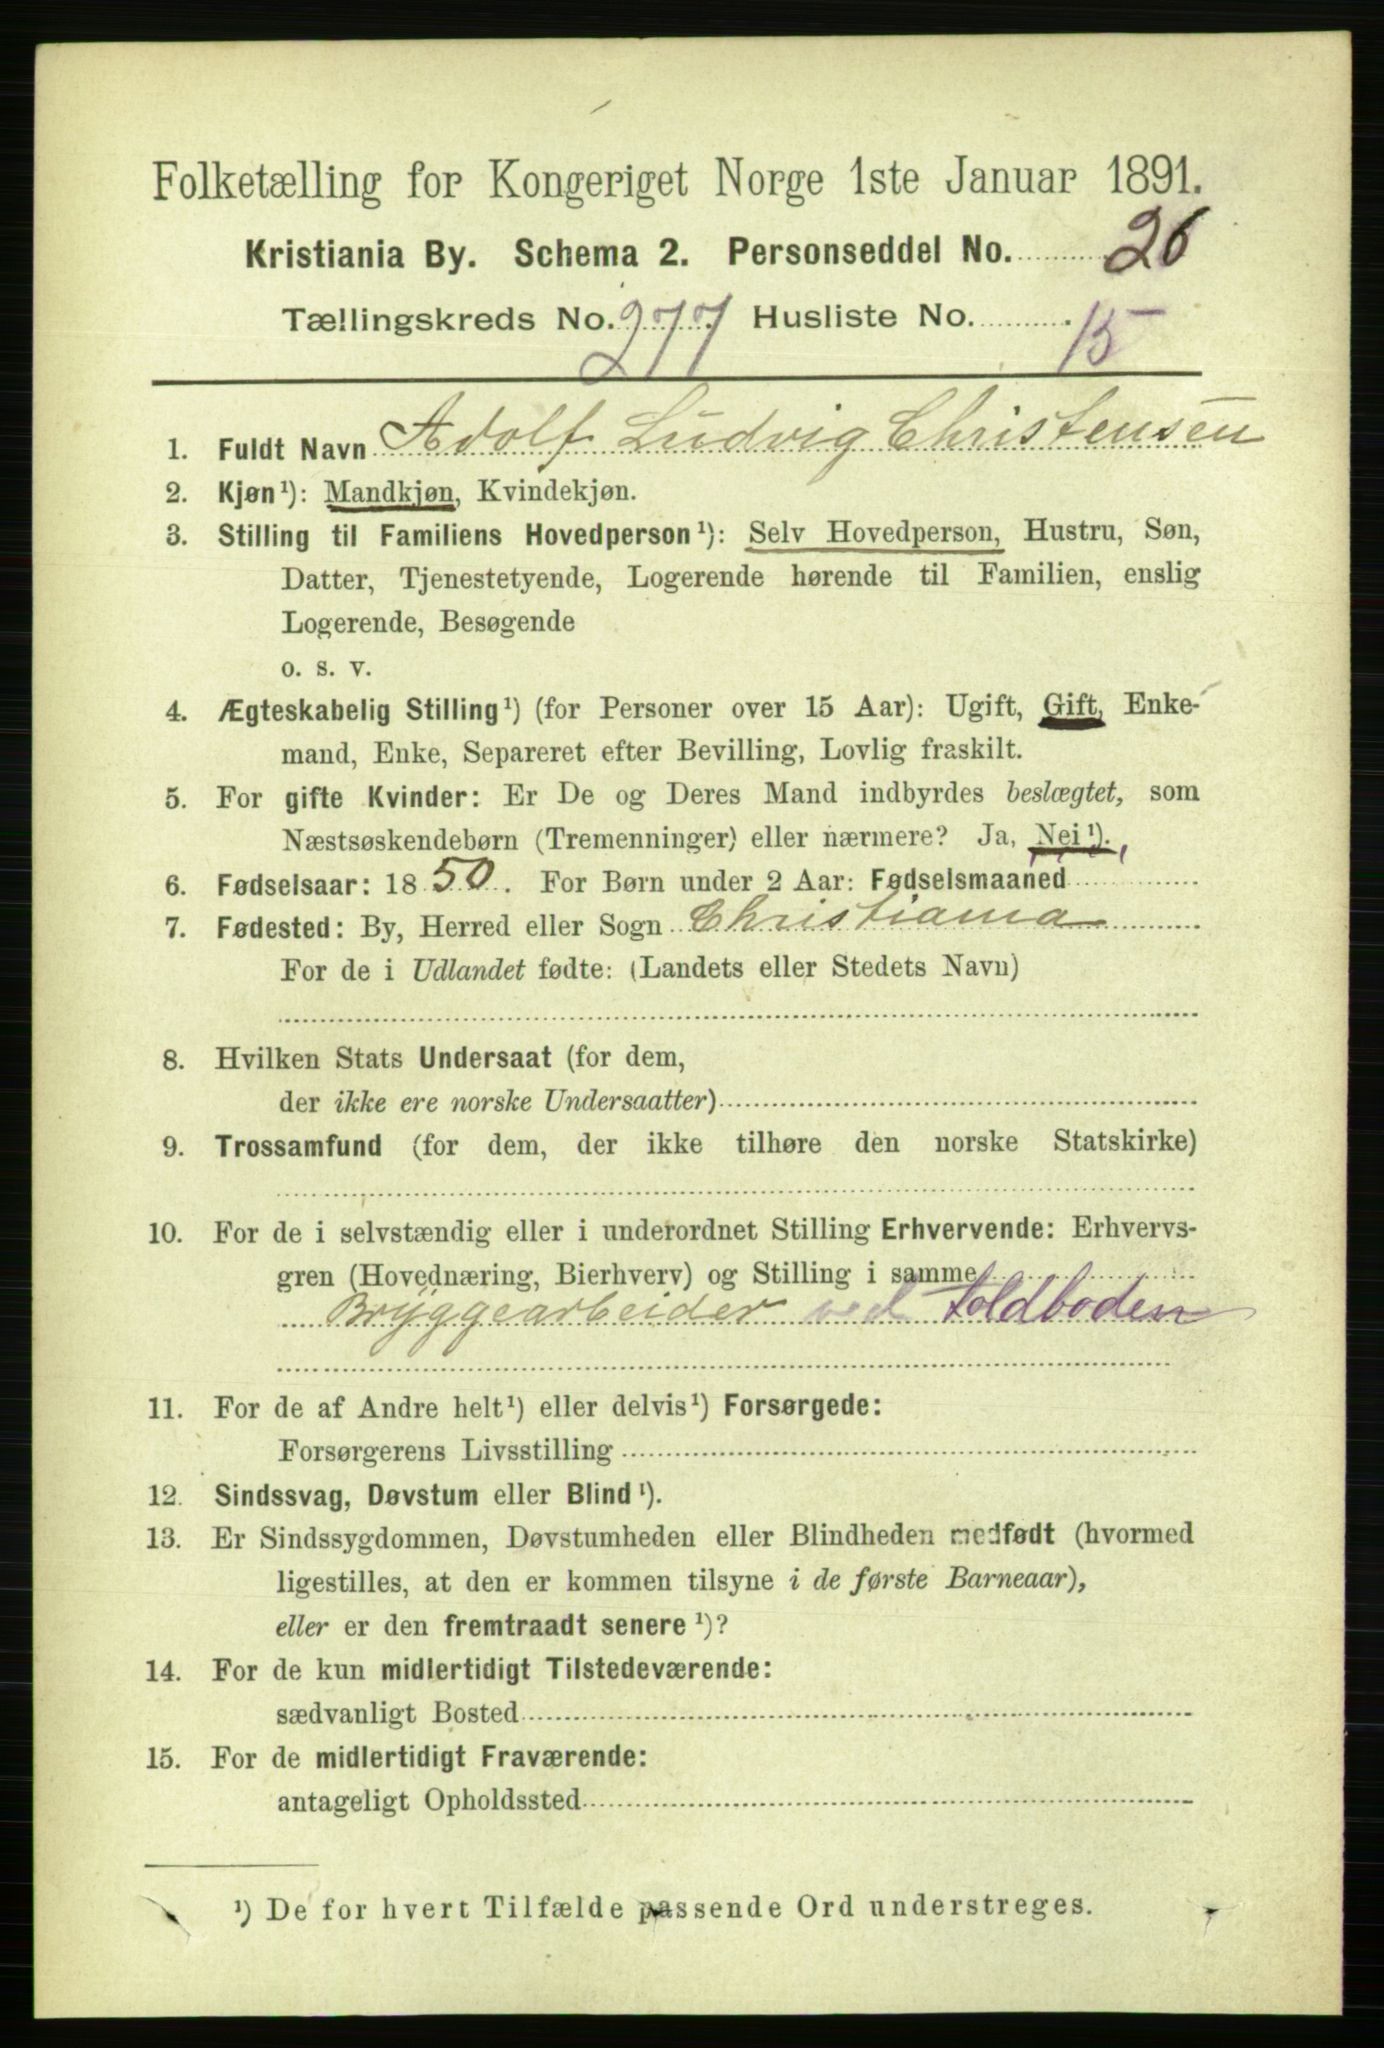 Folketælling for Kongeriget Norge 1ste Januar 1891.
Kristiania By. Schema 2. Personseddel No. 26
Tællingskreds No. 277 Husliste No. 15
1. Fuldt Navn Adolf Ludvig Christensen
2. Kjøn¹): Mandkjøn, Kvindekjøn.
3. Stilling til Familiens Hovedperson¹): Selv Hovedperson, Hustru, Søn,
Datter, Tjenestetyende, Logerende hørende til Familien, enslig
Logerende, Besøgende
o. s. v.
4. Ægteskabelig Stilling¹) (for Personer over 15 Aar): Ugift, Gift, Enke-
mand, Enke, Separeret efter Bevilling, Lovlig fraskilt.
5. For gifte Kvinder: Er De og Deres Mand indbyrdes beslægtet, som
Næstsøskendebørn (Tremenninger) eller nærmere? Ja, Nei¹).
6. Fødselsaar: 1850. For Børn under 2 Aar: Fødselsmaaned
7. Fødested: By, Herred eller Sogn Christiania
For de i Udlandet fødte: (Landets eller Stedets Navn)
8. Hvilken Stats Undersaat (for dem,
der ikke ere norske Undersaatter)
9. Trossamfund (for dem, der ikke tilhøre den norske Statskirke)
10. For de i selvstændig eller i underordnet Stilling Erhvervende: Erhvervs-
gren (Hovednæring, Bierhverv) og Stilling i samme
Bryggearbeider ved toldboden
11. For de af Andre helt¹) eller delvis¹) Forsørgede:
Forsørgerens Livsstilling
12. Sindssvag, Døvstum eller Blind¹).
13. Er Sindssygdommen, Døvstumheden eller Blindheden medfødt (hvormed
ligestilles, at den er kommen tilsyne i de første Barneaar),
eller er den fremtraadt senere¹)?
14. For de kun midlertidigt Tilstedeværende:
sædvanligt Bosted
15. For de midlertidigt Fraværende:
antageligt Opholdssted
¹) De for hvert Tilfælde passende Ord understreges.